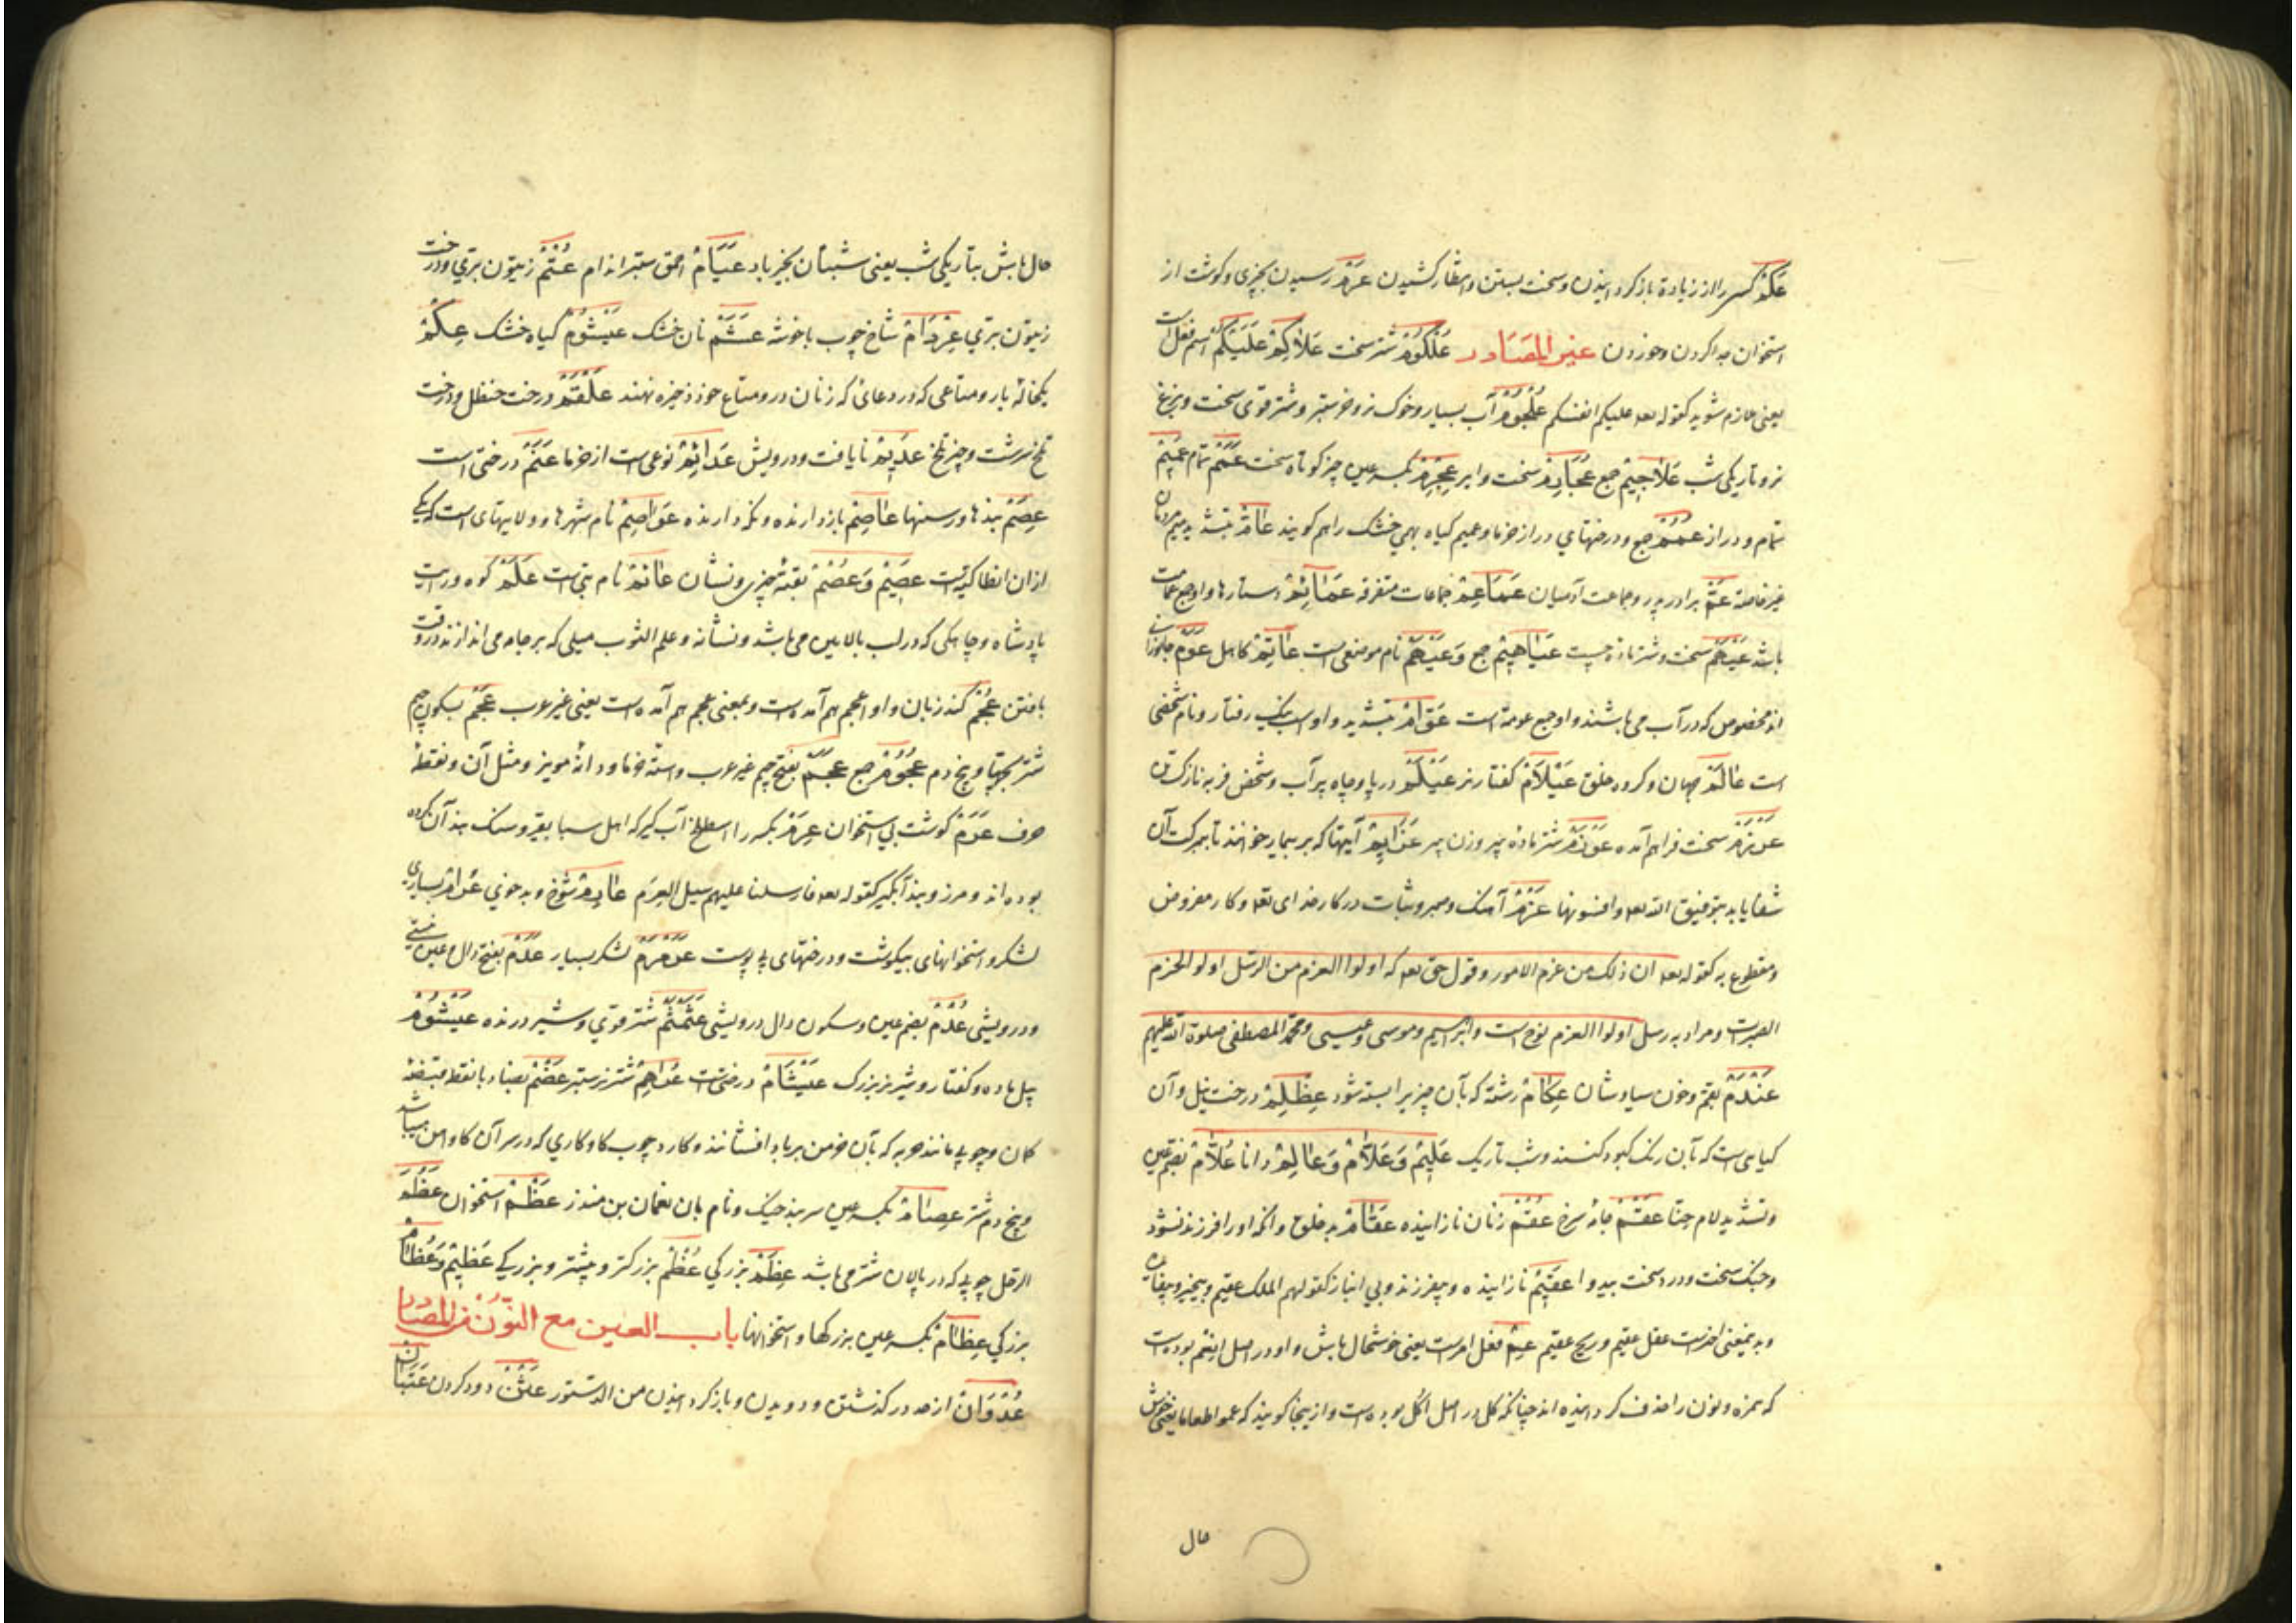 عَکْمْ کسی را از زیادة باز کردانیدن و سخت بستن و انتظار کشیدن عَرْمْ رسیدن بچیزی و کوشت از
استخوان جدا کردن و خوردن غیر المَصَادر عُلْکُوْمْ شتر سخت عَلَاکِمْ عَلَیْکُمْ اسم فعل است
یعنی لازم شوید کقوله تعه علیکم انفسکم عُلْجُوْمْ آب بسیار و خوک نر و خر ستبر و شتر قوی سخت و بزغ
نر و تاریکی شب عَلَاجِیْمْ جمع عُجَارِمْ سخت و ایر عِجْرِمْ بکسر عین چیز کوتاه سخت عَمَمْ تمام عَمِیْمْ
تمام و دراز عُمُمْ جمع و درختهای دراز خرما و عمیم کیاه بهمی خشک را هم کویند عَامّْ بتشدید میم مردمان
غیر خاصة عَمّْ برادر پدر و جماعت آدمیان عَمَاعِمْ جماعات متفرقه عَمَائِمْ دستارها و او جمع عمامت
باشد عَیْهَمْ سخت و شتر تازه چست عَیَاهِیْمْ جمع وَ عَیْهَمْ نام موضعی است عَاتِمْ کاهل عَوْمْ جانوران
اند مخصوص که در آب می باشند و او جمع عومة است عَوَّامْ بتشدید واو اسب نیک رفتار و نام شخصی
است عَالَمْ جهان و کروه خلق عَیْلَامْ کفتار نر عَیْلَمْ دریا و چاه پر آب و شخص فربه نازک تن
عَرَمْرَمْ سخت فراهم آمده عَوْزَمْ شتر ماده پیر و زن پیر عَزَایِمْ آیتها که بر بیمار خوانند تا ببرکت آن
شفا یابد بتوفیق الله تعه و افسونها عَزْمْ آهنک و صبر و ثبات در کار خدای تعه و کار مفروض
و مقطوع به کقوله تعه ان ذلک من عزم الامور و قول حق تعه که اولوا العزم من الرسل اولو الحزم
الصبرست و مراد به رسل اولوا العزم نوح است و ابراهیم و موسی و عیسی و محمّد المصطفی صلوة الله علیهم
عَنْدَمْ بقم و خون سیاوشان عِکَامْ رشته که بآن چیزیرا بسته شود عِظْلِمْ درخت نیل و آن
کیاهی است که بآن رنک کبود کنند و شب تاریک عَلِیْمْ وَ عَلَّامْ وَ عَالِمْ دانا عُلَّامْ بضم عین
و تشدید لام حنّا عَقْمْ جامۀ سرخ عُقُمْ زنان نازاینده عَقَامْ بد خلق و آنکه اورا فرزند نشود
و جنک سخت و درد سخت بیدوا عَقِیْمْ نازاینده و بیفرزند و بی انباز کقولهم الملک عقیم و بیخیر و بیفایده
و بدینمعنی اخرست عقل عقیم و ریح عقیم عِمْ فعل امرست یعنی خوشحال باش و او در اصل اِنْعَمْ بودست
که همزه و نون را حذف کردانیده اند چنانکه کل در اصل اُکل بوده است و از ینجا کویند که عموا طعاما یعنی خوش
حال
حال باش بتاریکی شب یعنی شبتان بخیر باد عَیَّامْ احمق ستبر اندام عُتُمْ زیتون بری و درخت
زیتون بری عِرْدَامْ شاخ چوب با خوشه عَشَمْ نان خشک عَیْشُوْمْ کیاه خشک عِکْمْ
یکتائه بار و متاعی که در دعائی که زنان درو متاع خود ذخیره نهند عَلْقَمْ درخت حنظل و درخت
تلخ سرشت و چیز تلخ عَدِیْمْ نایافت و درویش عَدَائِمْ نوعی است از خرما عَنَمْ درختی است
عِصَمْ بندها و رسنها عَاصِمْ باز دارنده و نکه دارنده عَوَاصِمْ نام شهرها و ولایتهای است که یکی
از ان انطاکیّة است عَصِیْمْ وَ عُصْمْ بقیّۀ چیزی و نشان عَانِمْ نام بتی است عَلَمْ کوه و رایت
پادشاه و چاهکی که در لب بالایین می باشد و نشانه و علم الثوب میلی که بر جامه می اندازند در وقت
بافتن عُجْمْ کند زبان و او اعجم هم آمده است و بمعنی عجم هم آمده است یعنی غیر عرب عَجْمْ بسکون جیم
شتر بچها و بیخ دم عُجُوْمْ جمع عَجَمْ بفتح جیم غیر عرب و استه خرما و دانۀ مویز و مثل آن و نقطۀ
حرف عَرَمْ کوشت بی استخوان عَرِمْ بکسر را اسطلخ آب کیر که اهل سبا بقیر و سنک بند آن کرده
بوده اند و مرز و بند آبکیر کقوله تعه فارسلنا علیهم سیل العرم عَارِمْ شوخ و بد خوئی عُرَامْ بسیاری
لشکر و استخوانهای بیکوشت و درختهای بی پوست عَرَمْرَمْ لشکر بسیار عَدَمْ بفتح دال و عین نیستی
و درویشی عُدْمْ بضم عین و سکون دال درویشی عَثَمْثَمْ شتر قوی و شیر درنده عَیْثُوْمْ
پیل ماده و کفتار و شیر نر بزرک عَیْثَامْ درختی است عُرَاهِمْ شتر نر ستبر عَضْمْ بضاد با نقطه قبضۀ
کمان و چوبی مانند حربه که بآن خرمن بر باد افشانند و کارد چوب کاو کاری که در سر آن کاو آهن میباشد
و بیخ دم شتر عِصَامْ بکسر عین سربند خیک و نام بان نعمان بن منذر عَظْمْ استخوان عَظْمُ
الرحل چوبی که در پالان شتر می باشد عِظَمْ بزرکی عُظْمْ بزرکتر و بیشتر و بزرکی عَظِیْمْ وَ عُظَامْ
بزرکی عِظَامْ بکسر عین بزرکها و استخوانها باب العین مع النّون فی المصادر
عُدْوَانْ از حد در کذشتن و دویدن و باز کردانیدن من الدستور عَثْنْ دود کردن عَتَبَانْ